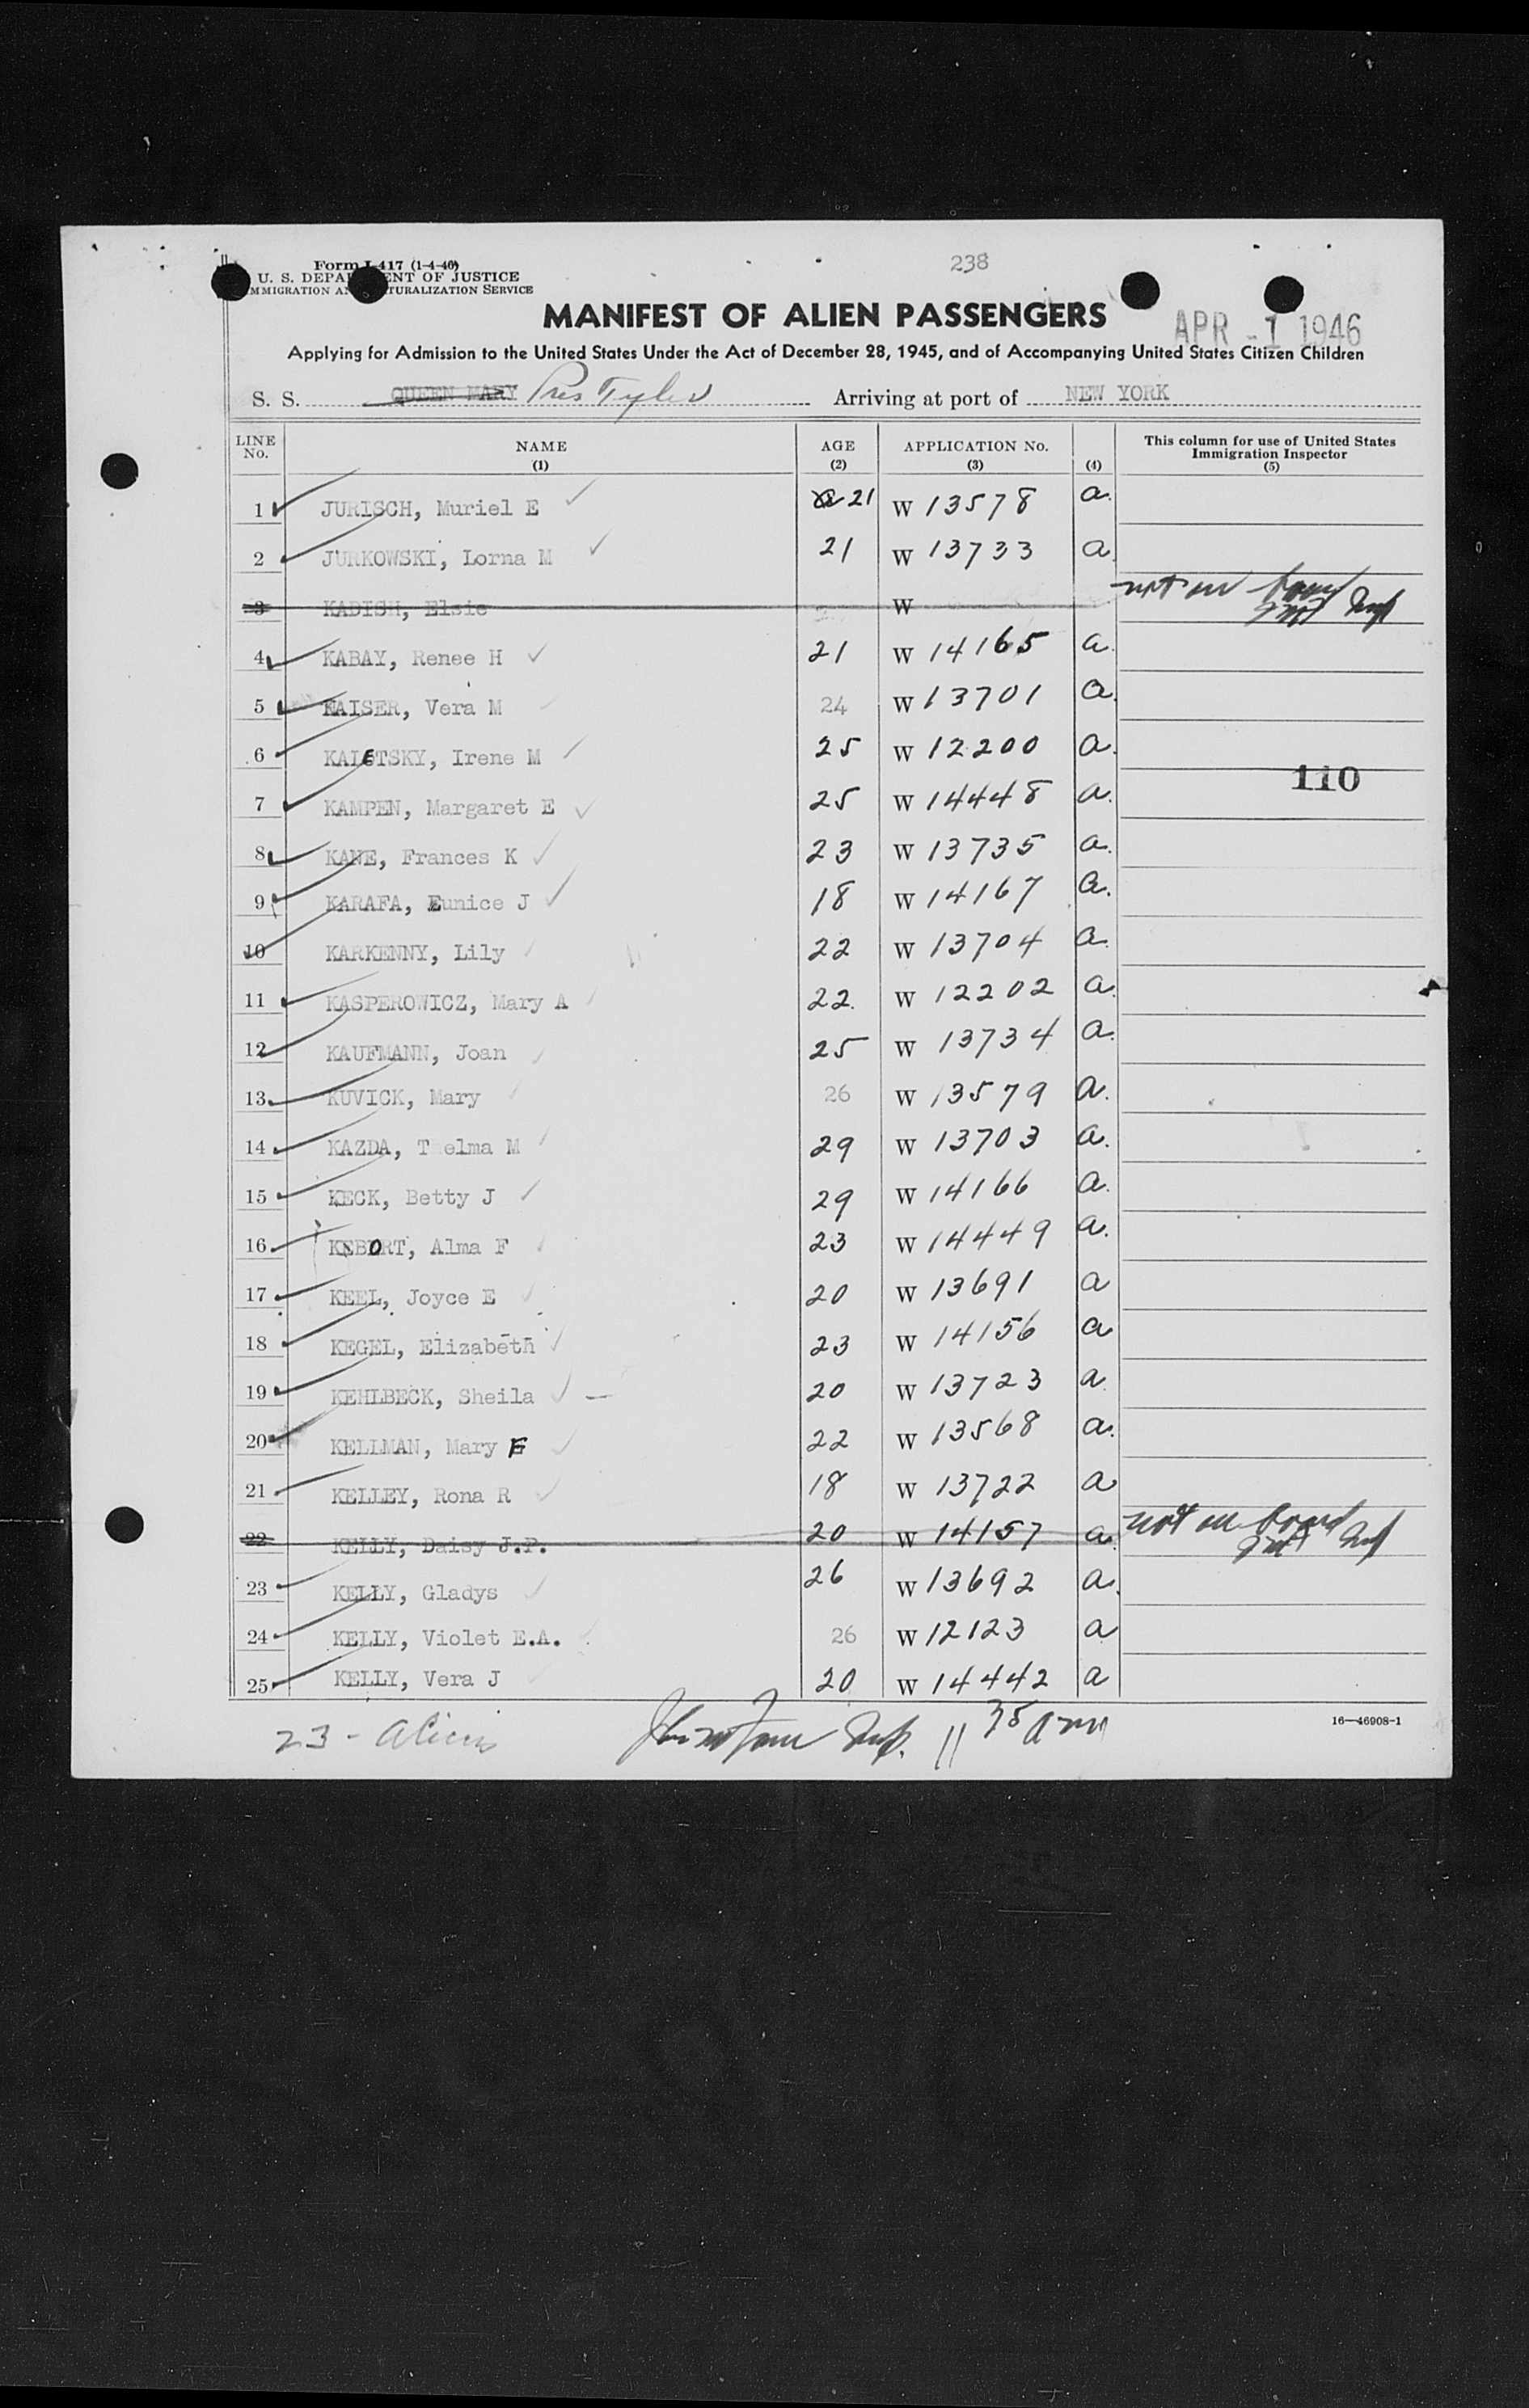 238
Form I-417 (1-4-46)
U. S. DEPARTMENT OF JUSTICE
IMMIGRATION AND NATURALIZATION SERVICE
MANIFEST OF ALIEN PASSENGERS
APR -1 1946
Applying for Admission to the United States Under the Act of December 28, 1945, and of Accompanying United States Citizen Children
S. S. QUEEN MARY Pres Tyler Arriving at port of NEW YORK
LINE No. NAME (1) AGE (2) APPLICATION No. (3) (4) This column for use of United States Immigration Inspector (5)
1 JURISCH, Muriel E 21 W 13578 a.
2 JURKOWSKI, Lorna M 21 W 13733 a
3 KADISH, Elsie W not on board
4 KABAY, Renee H 21 W 14165 a
5 KAISER, Vera M 24 W 13701 a.
6 KALETSKY, Irene M 25 W 12200 a.
110
7 KAMPEN, Margaret E 25 W 14448 a.
8 KANE, Frances K 23 W 13735 a.
9 KARAFA, Eunice J 18 W 14167 a.
10 KARKENNY, Lily 22 W 13704 a.
11 KASPEROWICZ, Mary A 22. W 12202 a.
12 KAUFMANN, Joan 25 W 13734 a.
13 KUVICK, Mary 26 W 13579 a.
14 KAZDA, Thelma M 29 W 13703 a.
15 KECK, Betty J 29 W 14166 a.
16 KEBORT, Alma F 23 W 14449 a.
17 KEEL, Joyce E 20 W 13691 a
18 KEGEL, Elizabeth 23 W 14156 a
19 KEHLBECK, Sheila 20 W 13723 a
20 KELLMAN, Mary F 22 W 13568 a.
21 KELLEY, Rona R 18 W 13722 a
22 KELLY, Daisy J.P. 20 W 14157 a. not on board
23 KELLY, Gladys 26 W 13692 a.
24 KELLY, Violet E.A. 26 W 12123 a
25 KELLY, Vera J 20 W 14442 a
23 - aliens Insp. 11 35 am
16—46908-1